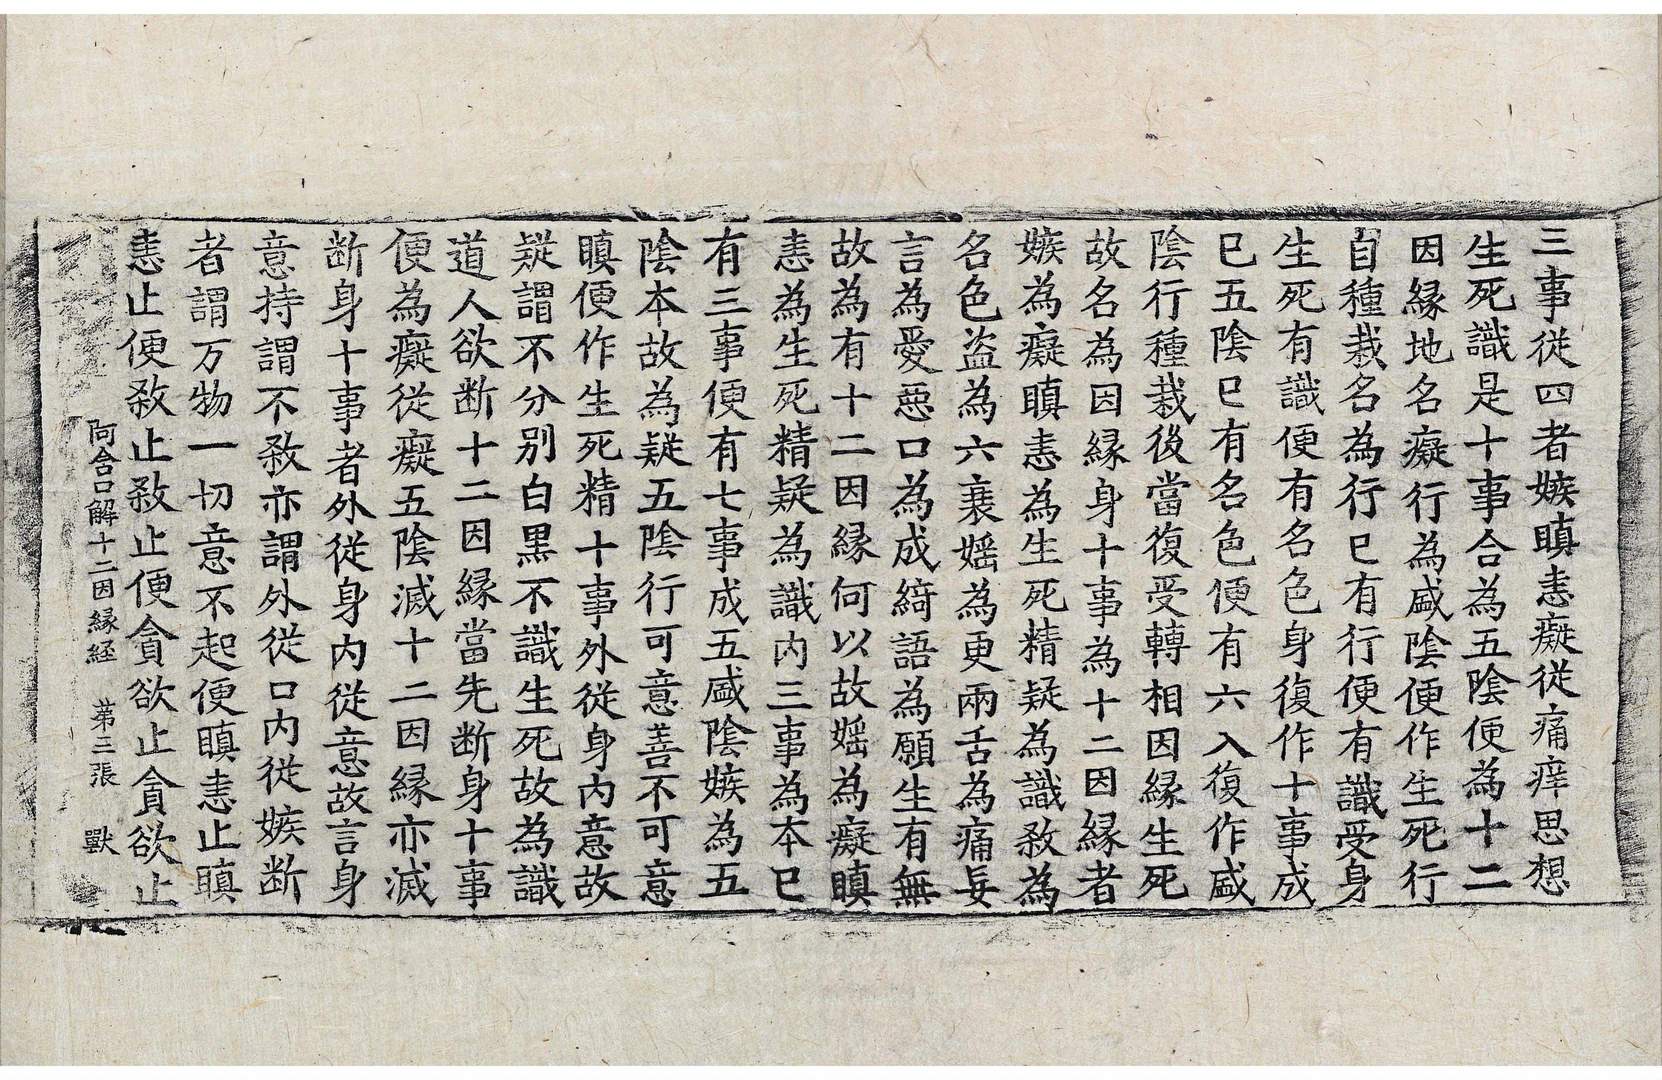 三事従四者嫉瞋恚癡従痛痒思想
生死識是十事合為五陰便為十二
因縁地名癡行為盛陰便作生死行
自種栽名為行已有行便有識受身
生死有識便有名色身復作十事成
已五陰已有名色便有六入復作盛
陰行種栽後當復受轉相因縁生死
故名為因縁身十事為十二因縁者
嫉為癡瞋恚為生死精疑為識殺為
名色盗為六衰婬為更兩舌為痛妄
言為愛惡口為成綺語為願生有無
故為有十二因縁何以故婬為癡瞋
恚為生死精疑為識内三事為本已
有三事便有七事成五盛陰嫉為五
陰本故為疑五陰行可意善不可意
瞋便作生死精十事外従身内意故
疑謂不分別白黒不識生死故為識
道人欲断十二因縁當先断身十事
便為癡従癡五陰滅十二因縁亦滅
断身十事者外従身内従意故言身
意持謂不殺亦謂外従口内従嫉断
者謂万物一切意不起便瞋恚止瞋
恚止便殺止殺止便貪欲止貪欲止
阿含口解十二因縁経 苐三張 獸